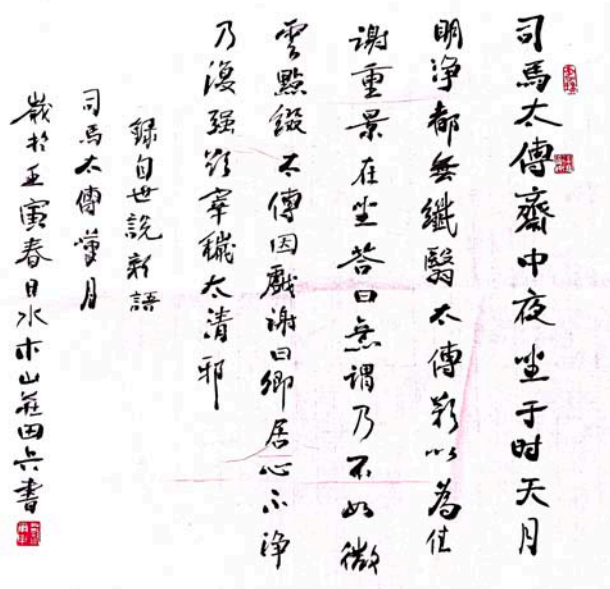 司馬太傅齋中夜坐于时天月
明浄都無纖翳太傅歎以為佳
謝重景在坐荅曰意謂乃不如微
雲點綴太傅因戲謝曰卿居心不浄
乃復强欲滓穢太清邪
録自世說新語
司馬太傅賞月
嵗於壬寅春日水木山莊田書